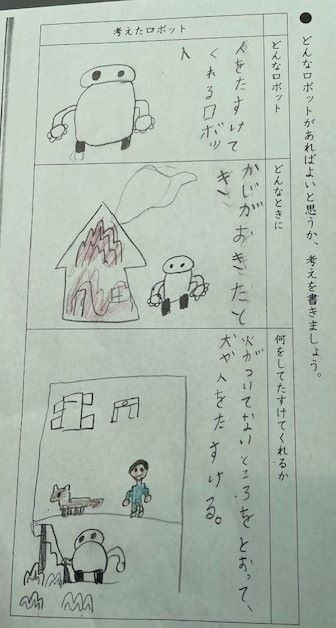 ●どんなロボットがあればよいと思うか、考えを書きましょう。
考えたロボット
どんなロボット
人をたすけて
くれるロボッ
ト
どんなときに
かじがおきたと
き
何をしてたすけてくれるか
火がついてないところをとおって、
犬や人をたすける。